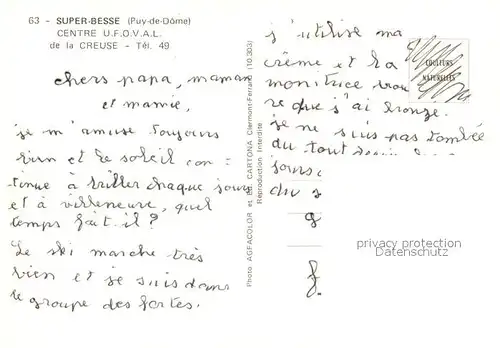 63 - SUPER-BESSE (Puy-de-Dôme)
CENTRE U.F.O.V.A.L.
de la CREUSE - Tél. 49
chers papa, maman
et mamie,
je m'amuse toujours
bien et le soleil con-
tinue à briller chaque jour
et à villeneuve, quel
temps fait il?
Le ski marche très
bien et je suis dans
le groupe des fortes.
Photo AGFACOLOR et Ed. CARTONA Clermont-Ferrand (10.303)
Reproduction Interdite
j'utilise ma
crème et la
monitrice trou
ve que j'ai bronzé.
je ne suis pas tombée
du tout
jours
du s
g
f.
COULEURS
NATURELLES
privacy protection
Datenschutz